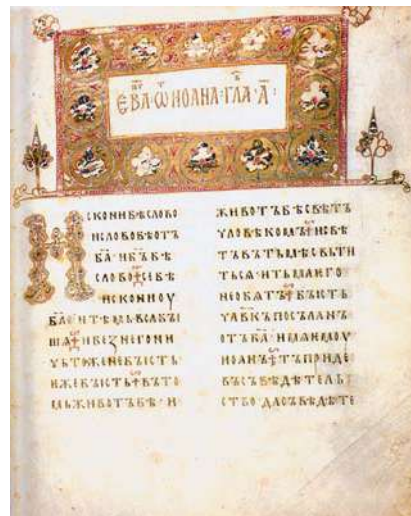 ЄВА·Ѿ ИОАНА·ГЛА·А҃:
ИСКОНИ БѢ СЛОВО
И СЛОВО БѢ ОТЪ
БА҃·И Б҃Ъ БѢ
СЛОВО ⁘ СЕ БѢ
ИСКОНИ ОУ
БА҃·И ТѢМЬ ВЬСѦ БЫ
ШѦ ⁘ И БЕЗ НЕГО НИ
ЧЬТОЖЕ НЕ БЫСТЬ
ѤЖЕ БЫСТЬ ⁘ ВЪ ТО
МЬ ЖИВОТЪ БѢ·И
ЖИВОТЪ БѢ СВѢТЪ
ЧЛОВѢКОМЪ ⁘ И СВѢ
ТЪ ВЪ ТЬМѢ СВЬТИ
ТЬСѦ·И ТЬМА ѤГО
НЕ ОБѦТЪ ⁘ БЫСТЬ
ЧЛ҃ВКЪ ПОСЪЛАНЪ
ОТЪ БА҃·ИМѦ ѤМОУ
ИОАНЪ ⁘ ТЪ ПРИДЕ
ВЪ СЪВѢДѢТЕЛЬ
СТВО·ДА СЪВѢДѢТЕ